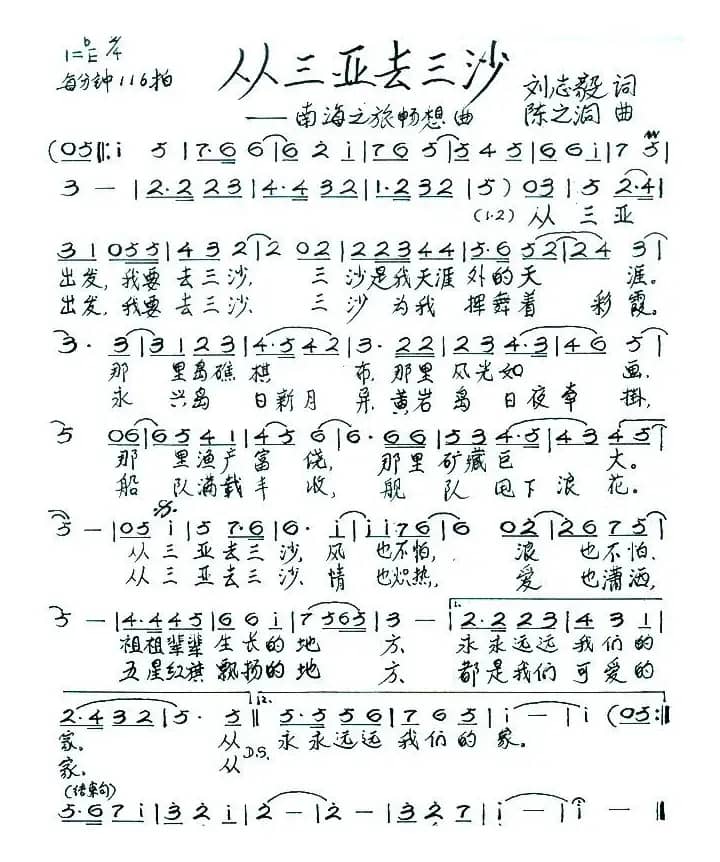 从三亚去三沙
1=♭E 2/4
每分钟116拍
——南海之旅畅想曲
刘志毅 词
陈之涧 曲
(05|:i 5|7·66|6 2 i|7 65|5 4 5|6 6 i|7 5|
3 —|2·2 23|4·4 32|1·2 32|5) 03|5 2·4|
(1.2) 从 三 亚
31 055|4 3 2|2 02|2234 4|5·6 52|24 3|
出发,我要去三沙, 三沙是我天涯外的天 涯。
出发,我要去三沙、 三沙为我 挥舞着 彩霞。
3· 3|3123|4·542|3· 22|234·3|46 5|
那 里岛礁棋 布,那里风光如 画,
永 兴岛 日新月 异,黄岩岛 日夜牵 掛,
5 06|6541|45 6|6· 66|534·5|43 45|
那 里渔产富 饶, 那里矿藏巨 大。
船 队满载丰 收, 舰 队甩下浪 花。
5 —|05 i|5 7·6|6· i|ii76|6 02|2675|
从三亚去三沙,风 也不怕, 浪 也不怕、
从三亚去三沙、情 也炽热, 爱 也潇洒,
5 —|4·4 45|6 6 i|7 565|3 —|2·2 23|4 3 1|
1.
祖祖辈辈生长的地 方、 永永远远我们的
五星红旗飘扬的地 方、 都是我们可爱的
2·4 32|5· 5‖5·5 56|7 6 5|i —|i (05:‖
2.
家。 从 D.S. 永永远远我们的家。
家。 从
(结束句)
5·6 7i|3 2 i|2 —|2 —|2 3 2|i —|i —|i 0‖